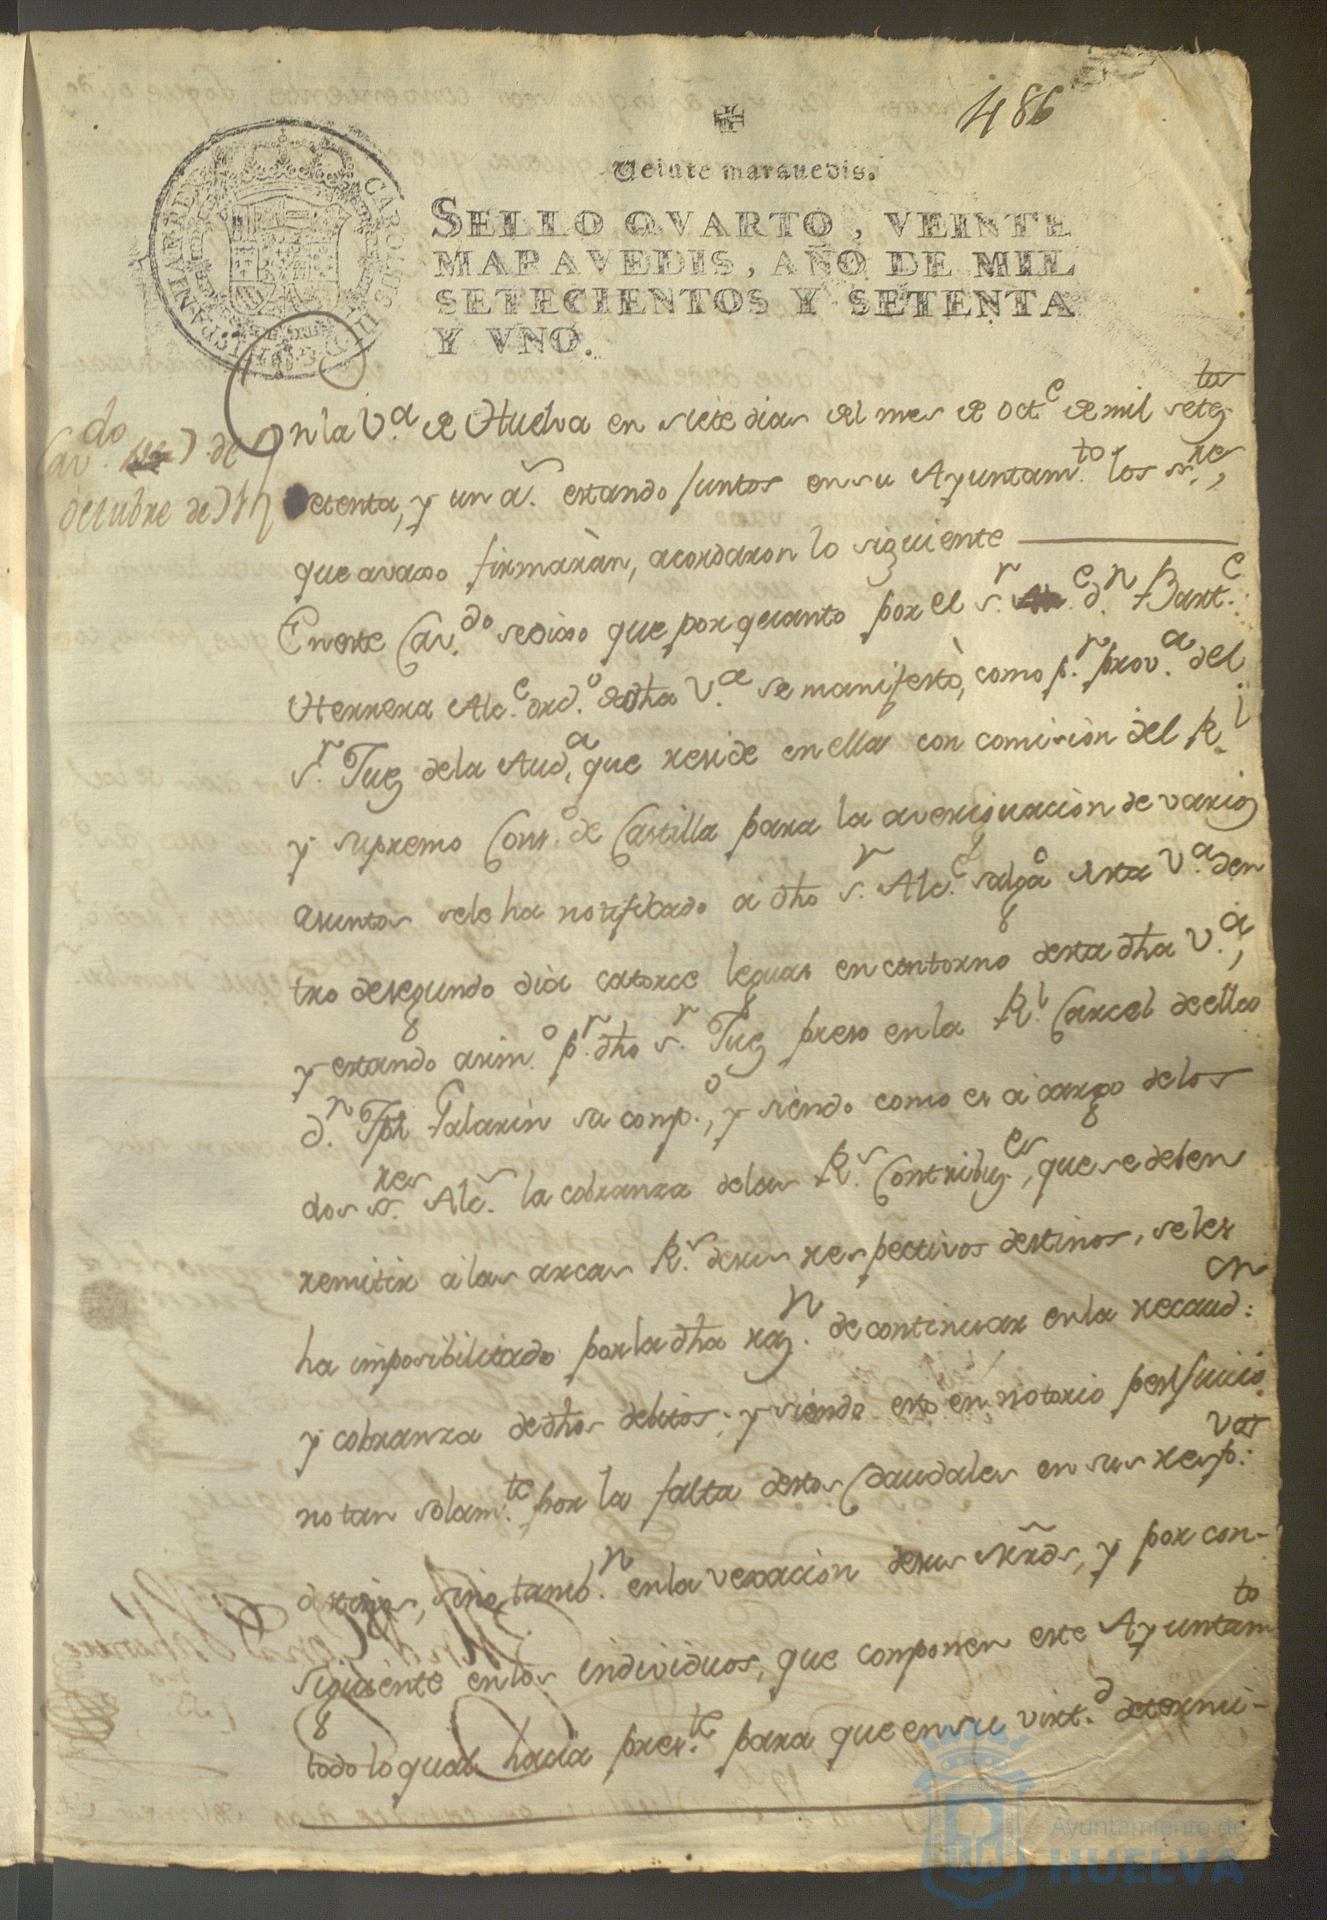 486
Veinte maravedis.
SELLO QVARTO, VEINTE
MARAVEDIS, AÑO DE MIL
SETECIENTOS Y SETENTA
Y VNO.
CAROLUS III D G HISPANIAR REX
Cav.do 7 de
octubre de 71
En la V.a de Huelva en siete dias del mes de Oct.e de mil setez.tos
setenta, y un a.s estando juntos en su Ayuntam.to los s.res,
que avaxo firmaràn, acordaron lo siguiente
En este Cav.do se dixo que por quanto por el s.r d.n Bart.e
Herrera Alc.e ord.o de dha V.a se manifestò, como p.r prov.a del
s.r Juez de la Aud.a que reside en ella con comisiòn del R.l
y supremo Cons.o de Castilla para la averiguaciòn de varios
asuntos se le ha notificado a dho s.r Alc.e salga de esta V.a den
tro de segundo dia catorce leguas en contorno desta dha V.a,
y estando asim.o p.r dho s.r Juez preso en la R.l Carcel de ella
d.n Jph Galarin su comp.o, y siendo como es a cargo de los
dos s.res Alc.s la cobranza de las R.s Contribuz.es, que se deben
remitir a las arcas R.s de sus respectivos destinos, se les
ha imposibilitado por la dha raz.n de continuar en la recaud:on
y cobranza de dhos debitos; y siendo esto en notorio perjuicio
no tan solam.te por la falta destos Caudales en sus resp:vos
destinos, sino tamb.n en la vexaciòn de sus Vezds, y por con-
siguiente en los individuos, que componen este Ayuntam.to
todo lo qual hacia pres.te para que en su virt.d determi-
Ayuntamiento de
HUELVA